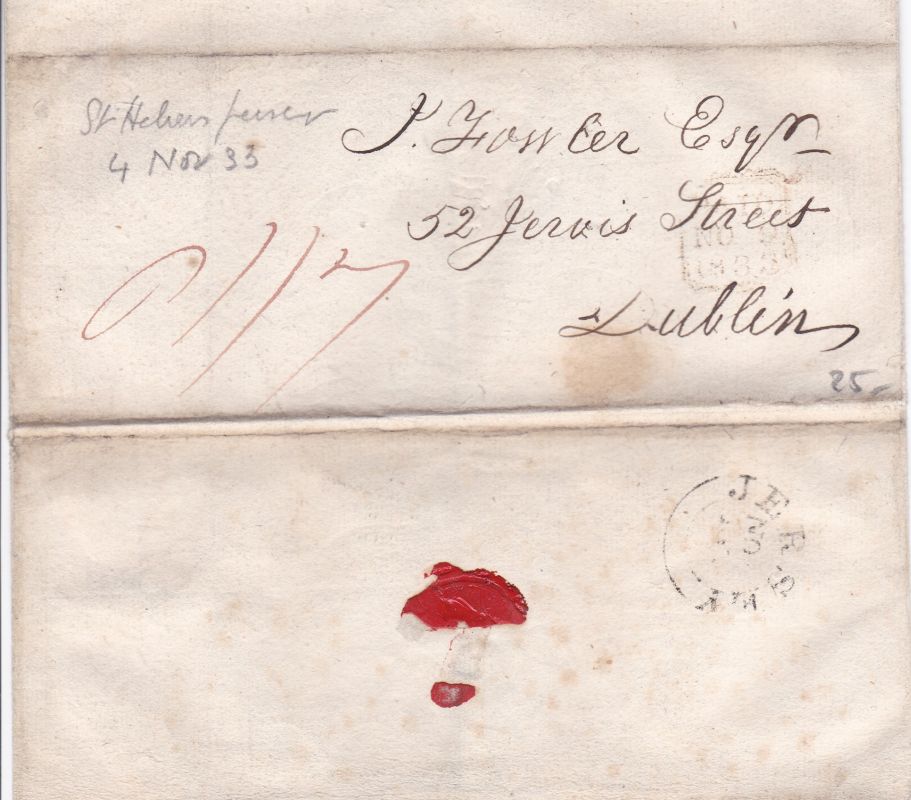 St Heliers Jersey
4 Nov 33
J. Fowler Esqr
52 Jervis Street
Dublin
NO
1833
25
JERSEY
NO